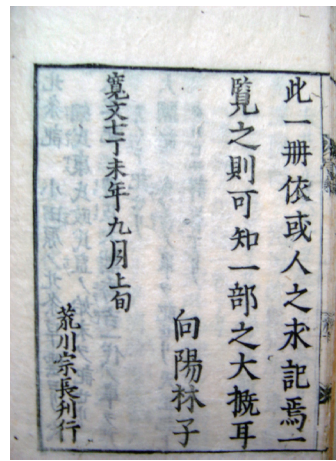 此一冊依或人之求記焉一
覧之則可知一部之大概耳
向陽林子
寛文七丁未年九月上旬
荒川宗長刋行